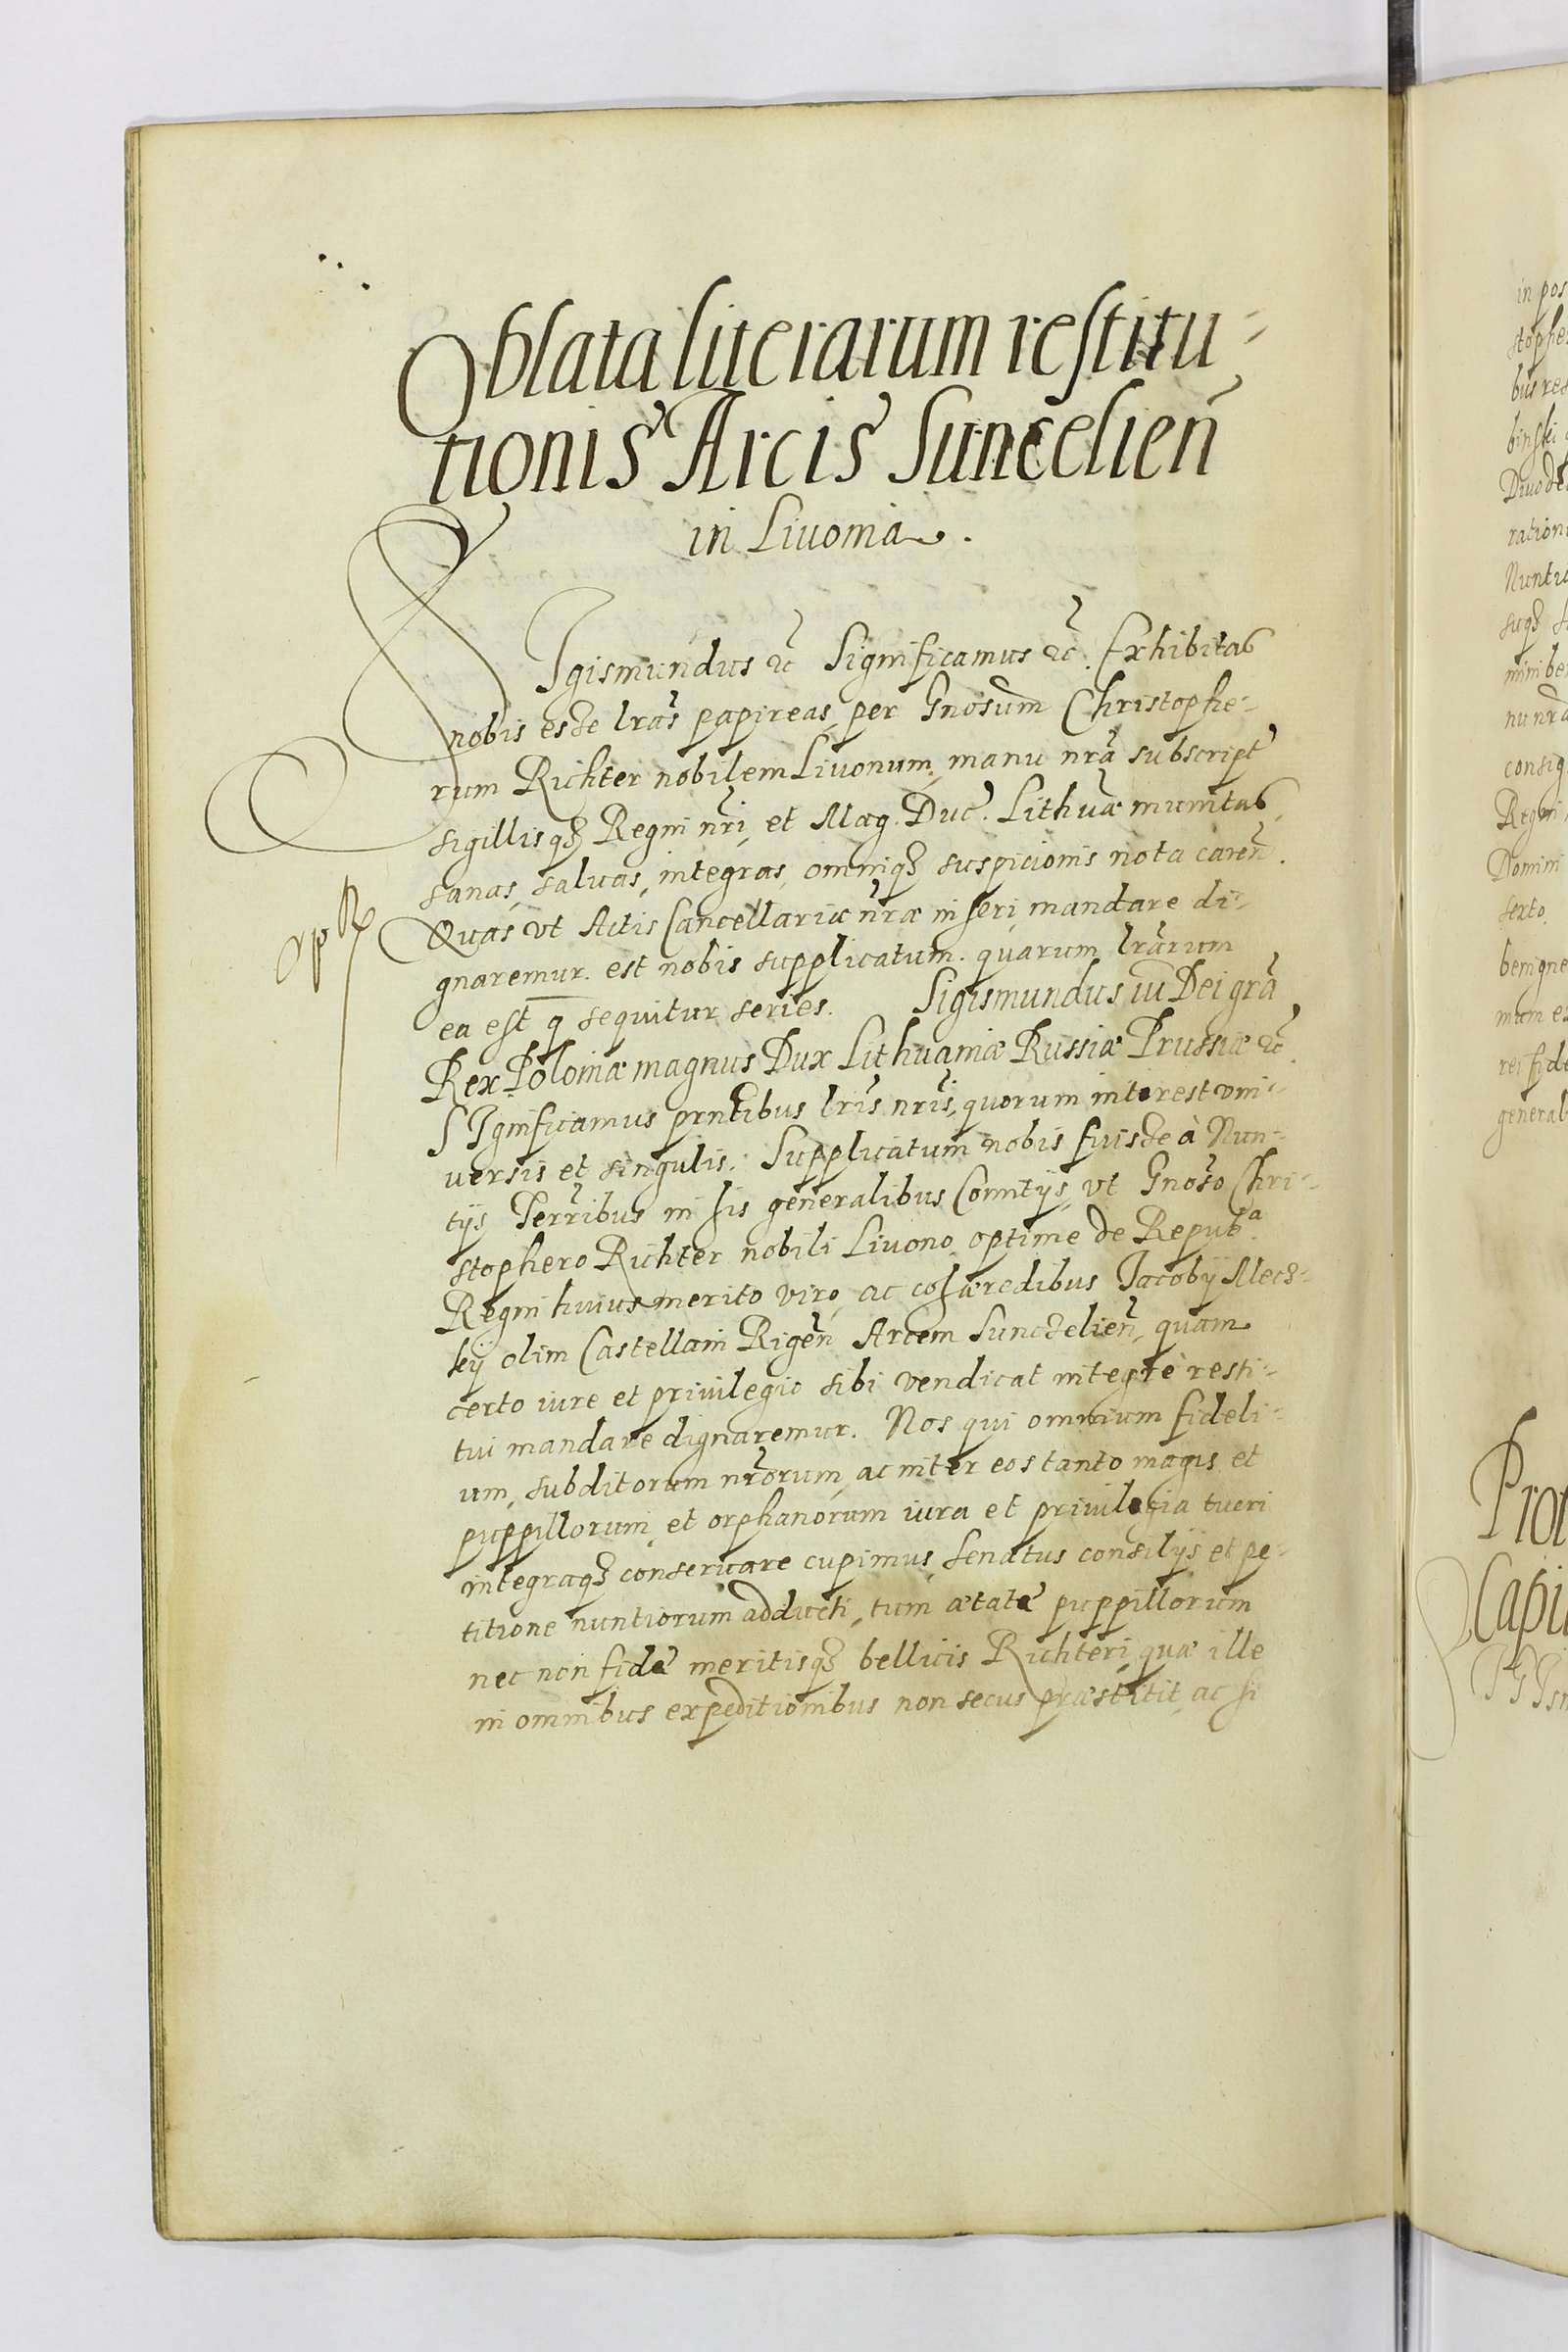 Oblata literarum restitu-
tionis Arcis Suncelien̄
in Livonia.
SIgismundus ꝛc̄ Significamus ꝛc̄. Exhibitas
nobis esse lr̄as papireas per Gnosum Christophe-
rum Richter nobilem Livonum, manu nr̄a subscript
sigillisqꝫ Regni nr̄i, et Mag. Duc. Lithuæ munitas,
sanas, saluas, integras, omniqꝫ suspicionis nota caren̄.
Quas vt Actis Cancellariæ nr̄æ inseri mandare di-
gnaremur. est nobis supplicatum. quarum lr̄arum
ea est q̄ sequitur series. Sigismundus iii Dei gr̄a
Rex Poloniæ magnus Dux Lithuaniæ Russiæ Prussiæ ꝛc̄.
SIgnificamus prn̄tibus lr̄is nr̄is, quorum interest vni-
uersis et singulis. Supplicatum nobis fuisse à Nun-
tijs Terr̄ibus in his generalibus Comitijs, vt Gnoso Chri-
stophero Richter nobili Livono, optime de Repubᵃ.
Regni huius merito viro, ac cohæredibus Jacobij Mecz-
kij olim Castellani Rigen̄ Arcem Sunczelien̄, quam
certo iure et priuilegio sibi vendicat integrè resti-
tui mandare dignaremur. Nos qui omnium fideli-
um, subditorum nr̄orum, ac inter eos tanto magis et
puppillorum, et orphanorum iura et priuilegia tueri
integraqꝫ conseruare cupimus, Senatus consilijs et pe-
titione nuntiorum adducti, tum ætate puppillorum
nec non fide meritisqꝫ bellicis Richteri, quæ ille
in omnibus expeditionibus non secus præstitit, ac si
in pos
stophe
bus res
binski
ration
Nuntio
suqꝫ
nu nr̄a
consig
Regni
Domini
sexto
benigne
rei fide
general
Prot
Capi